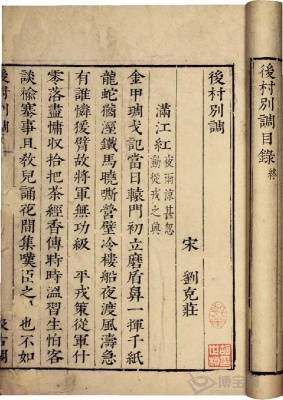 後村別調目錄 終
後村別調
宋 劉克莊
滿江紅 夜雨涼甚忽
動從戎之興
金甲琱戈記當日轅門初立磨盾鼻一揮千紙
龍蛇猶溼鐵馬曉嘶營壁冷樓船夜渡風濤急
有誰憐猨臂故將軍無功級 平戎策從軍什
零落盡慵收拾把茶經香傳時時溫習生怕客
談榆塞事且教兒誦花間集嘆臣之也不如
後村別調
汲古閣